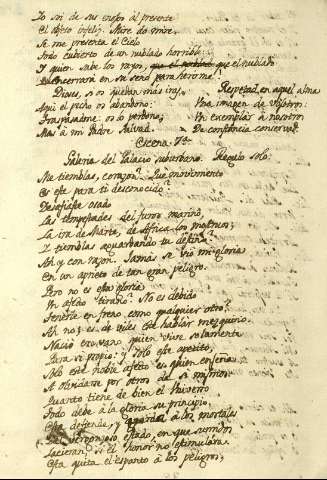 Yo soi de su enojo al presente
El objeto infeliz. Mire do mire,
Se me presenta el Cielo
Todo cubierto de un nublado horrible:
Y quien sabe los rayos, que el nublado
Encerrará en su seno para herirme!
Dioses, si os quedan más iras,
Aqui el pecho os abandono:
Traspasadme: os lo perdono;
Mas á mi Padre salvad.
Respetad en aquel alma
Una imagen de vosotros:
Un exemplar á nosotros
De constancia conservad.
Escena 7ª
Galeria del Palacio suburbano. Regulo solo.
Me tiemblas, corazon? Que movimiento
Es este para ti desconocido?
Desafiaste osado
Las tempestades del furor marino,
La ira de Marte, de Africa los monstruos;
Y tiemblas aguardando tu destino?
Ah y con razon. Jamás se vió mi gloria
En un aprieto de tan gran peligro.
Pero no es esta gloria
Un afecto tirano? No es debido
Tenerle en freno como qualquier otro?
Ah no; es de viles este hablar mezquino.
Nació en vano quien vive solamente
Para si propio: y solo este apetito,
Solo este noble afecto es quien enseña
A olvidarse por otros de si mismo.
Quanto tiene de bien el Universo
Todo debe á la gloria su principio.
Esta defiende, y á los mortales
Del vergonzoso estado, en que sumidos
Yacieran, si el honor no estimulára.
Esta quita el espanto á los peligros,